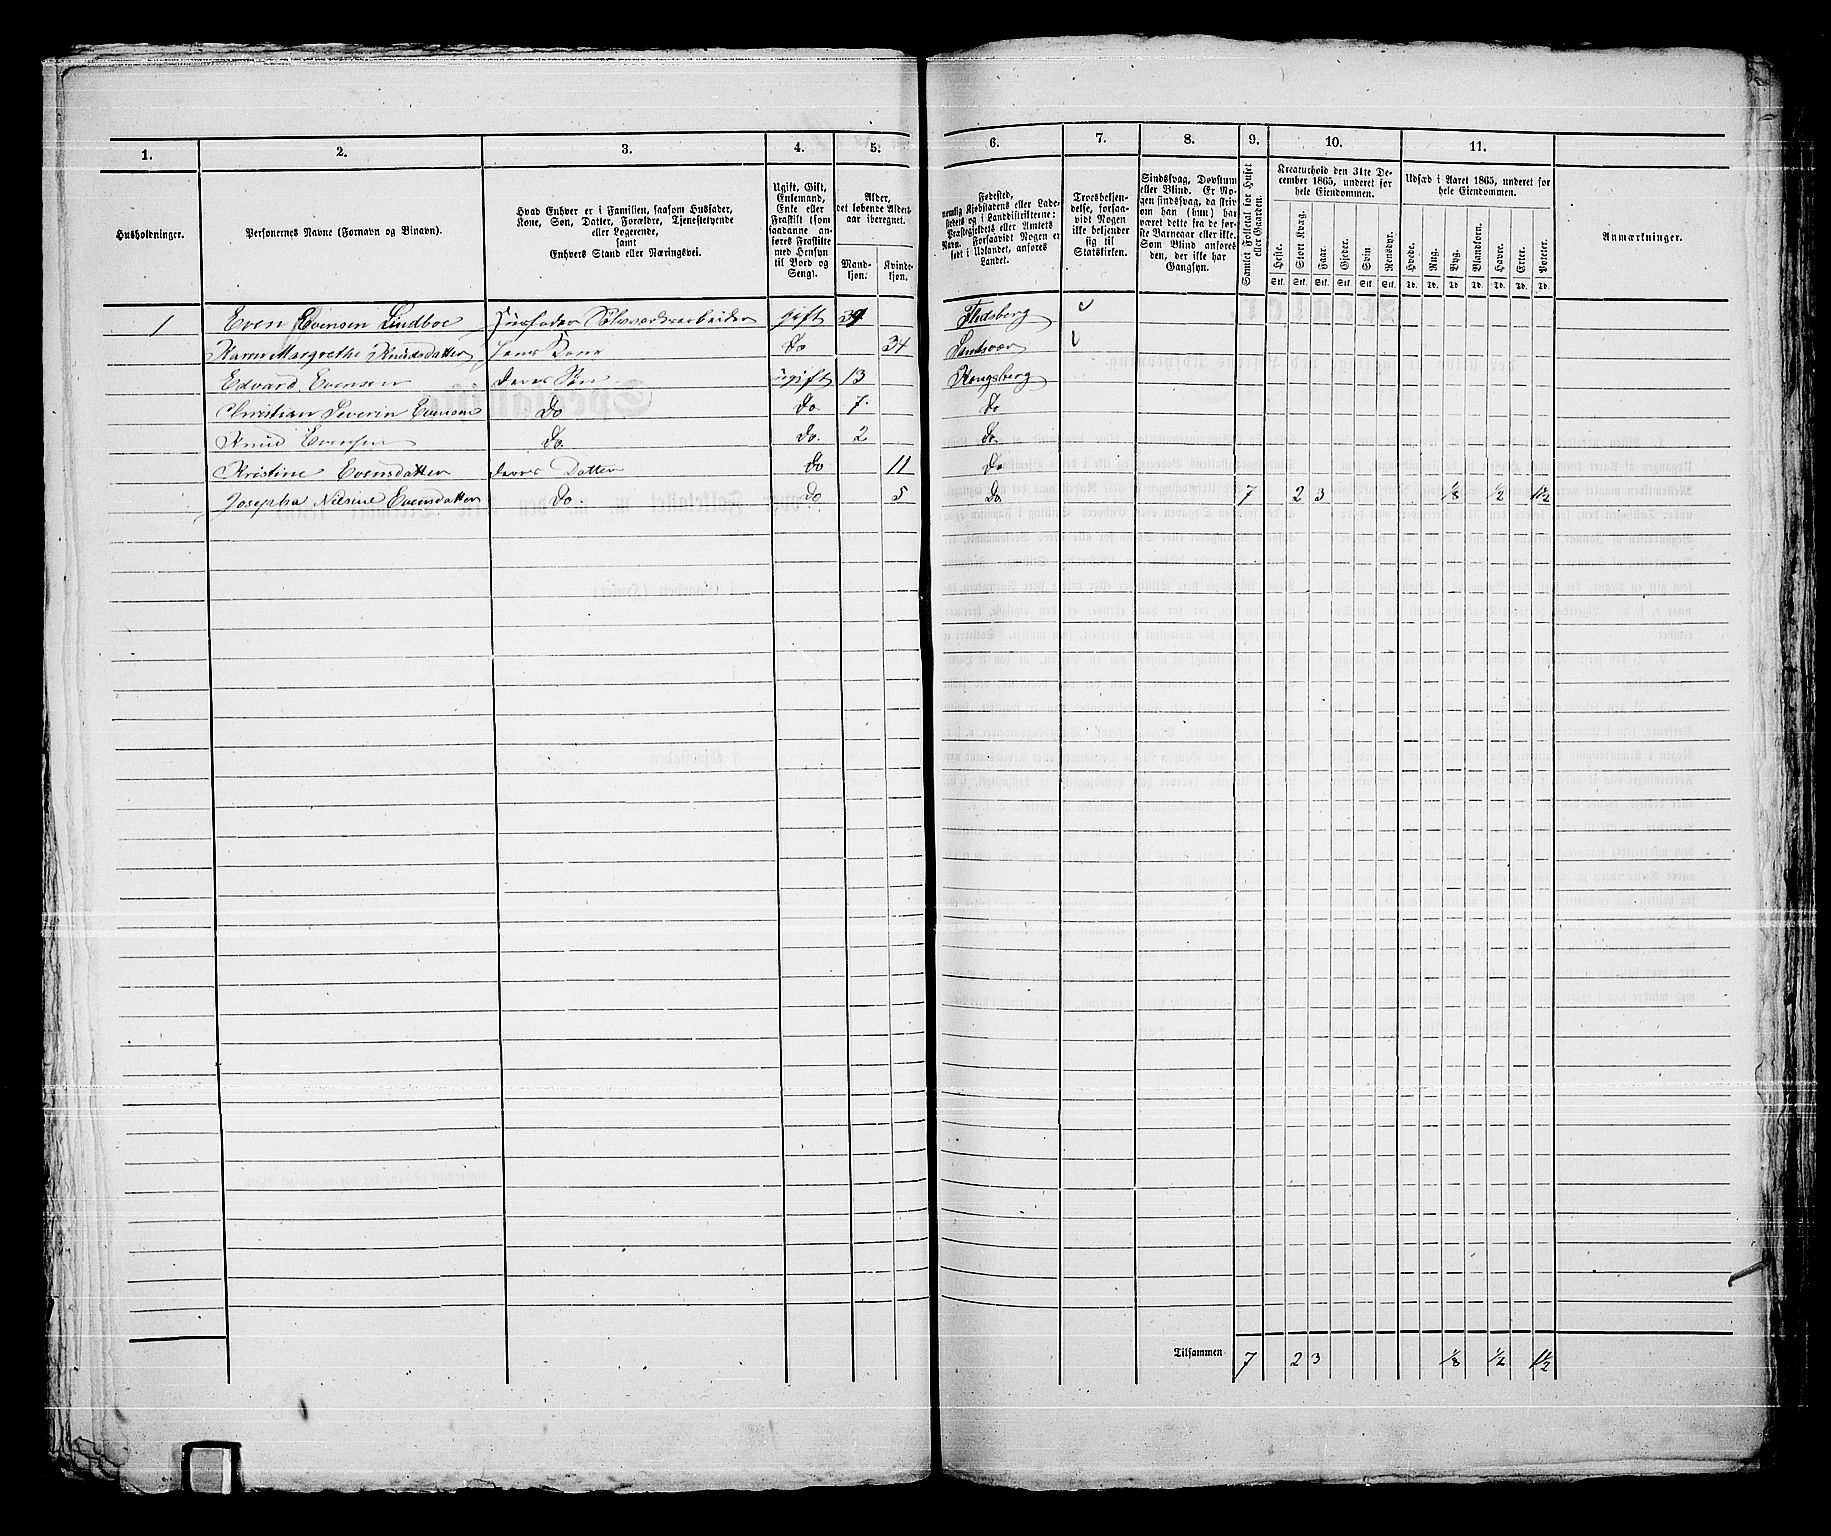 1. 2. 3. 4. 5. 6. 7. 8. 9. 10. 11.
Husholdninger.
Personernes Navne (Fornavn og Binavn).
Hvad Enhver er i Familien, saasom Husfader,
Kone, Søn, Datter, Forældre, Tjenestetyende
eller Logerende,
samt
Enhvers Stand eller Næringsvei.
Ugift, Gift,
Enkemand,
Enke eller
Fraskilt (som
saadanne an-
føres Fraskilte
med Hensyn
til Bord og
Seng).
Alder,
det løbende Alders-
aar iberegnet.
Mand-
kjøn.
Kvinde-
kjøn.
Fødested,
nemlig Kjøbstadens eller Lade-
stedets og i Landdistrikterne:
Præstegjeldets eller Amtets
Navn. Forsaavidt Nogen er
født i Udlandet, anføres
Landet.
Troesbekjen-
delse, forsaa-
vidt Nogen
ikke bekjender
sig til
Statskirken.
Sindssvag, Døvstum
eller Blind. Er No-
gen sindssvag, da skriv
om han (hun) har
været dette fra de før-
ste Barneaar eller ikke.
Som Blind anføres
den, der ikke har
Gangsyn.
Samlet Folketal for Huset
eller Gaarden.
Kreaturhold den 31te De-
cember 1865, underet for
hele Eiendommen.
Heste. Stort Kvæg. Faar. Gjeder. Svin. Rensdyr.
Stk. Stk. Stk. Stk. Stk. Stk.
Udsæd i Aaret 1865, underet for
hele Eiendommen.
Hvede. Rug. Byg. Blandkorn. Havre. Erter. Poteter.
Td. Td. Td. Td. Td. Td. Td.
Anmærkninger.
1 Even Evensen Lindboe Husfader Sølvverksarbeider gift 39 Flesberg
Karen Margrethe Knudsdatter Hans Kone do 34 Sandsvær
Edvard Evensen deres Søn ugift 13 Kongsberg
Christian Severin Evensen Do Do. 7 Do
Knud Evensen Do. Do. 2 Do.
Kristine Evensdatter deres Datter Do 11 Do
Josepha Nilsine Evensdatter Do. Do 5 Do. 7 2 3 1/8 1/2 1 1/2
Tilsammen 7 2 3 1/8 1/2 1 1/2